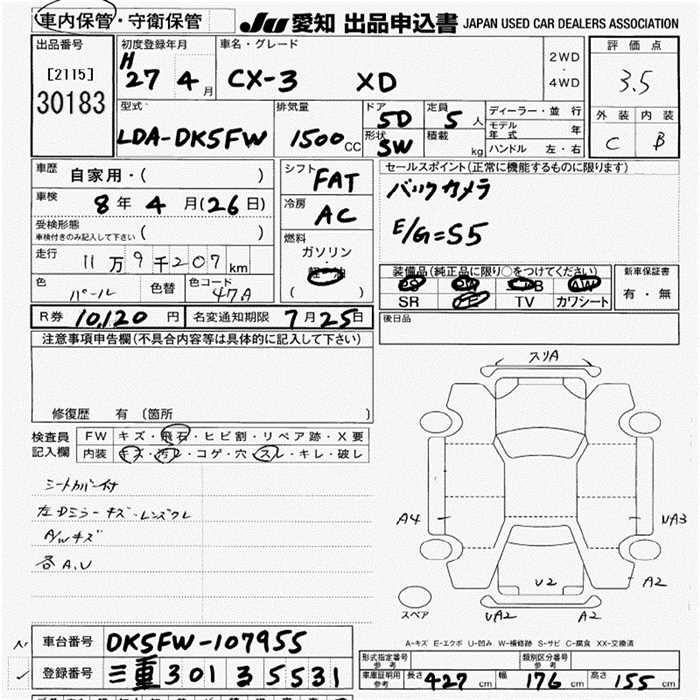 車内保管・守衛保管 JU 愛知 出品申込書 JAPAN USED CAR DEALERS ASSOCIATION
出品番号 初度登録年月 車名・グレード 2WD・4WD 評価点
[2115] H 27 4月 CX-3 XD 3.5
30183 型式 排気量 ドア 5D 定員 5人 ディーラー・並行 外装 内装
LDA-DK5FW 1500cc 形状 SW 積載 kg モデル年式 年 C B
ハンドル 左・右
車歴 自家用・( ) シフト FAT セールスポイント(正常に機能するものに限ります)
車検 8年4月(26日) 冷房 AC バックカメラ
受検形態 車検付きのみ記入して下さい ( ) E/G=S5
走行 11万9千207km 燃料 ガソリン・軽油 ( )
色 パール 色替 色コード 47A
装備品(純正品に限り○をつけてください) 新車保証書
PS PW AW 有・無
SR TV カワシート
R券 10,120円 名変通知期限 7月25日 後日品
注意事項申告欄(不具合内容等は具体的に記入して下さい)
修復歴 有 (箇所 )
検査員記入欄 FW キズ・飛石・ヒビ割・リペア跡・X要
内装 キズ・汚レ・コゲ・穴・スレ・キレ・破レ
シートカバー付
左Dミラーキズ・レンズワレ
A/Wキズ
各A.U
スリA
A4
UA3
U2
A2
スペア UA2 A2
A-キズ E-エクボ U-凹み W-補修跡 S-サビ C-腐食 XX-交換済
車台番号 DK5FW-107955
登録番号 三重 301 す 5531
形式指定番号 参考 類別区分番号 参考
車庫証明用 参考 長さ 427cm 幅 176cm 高さ 155cm